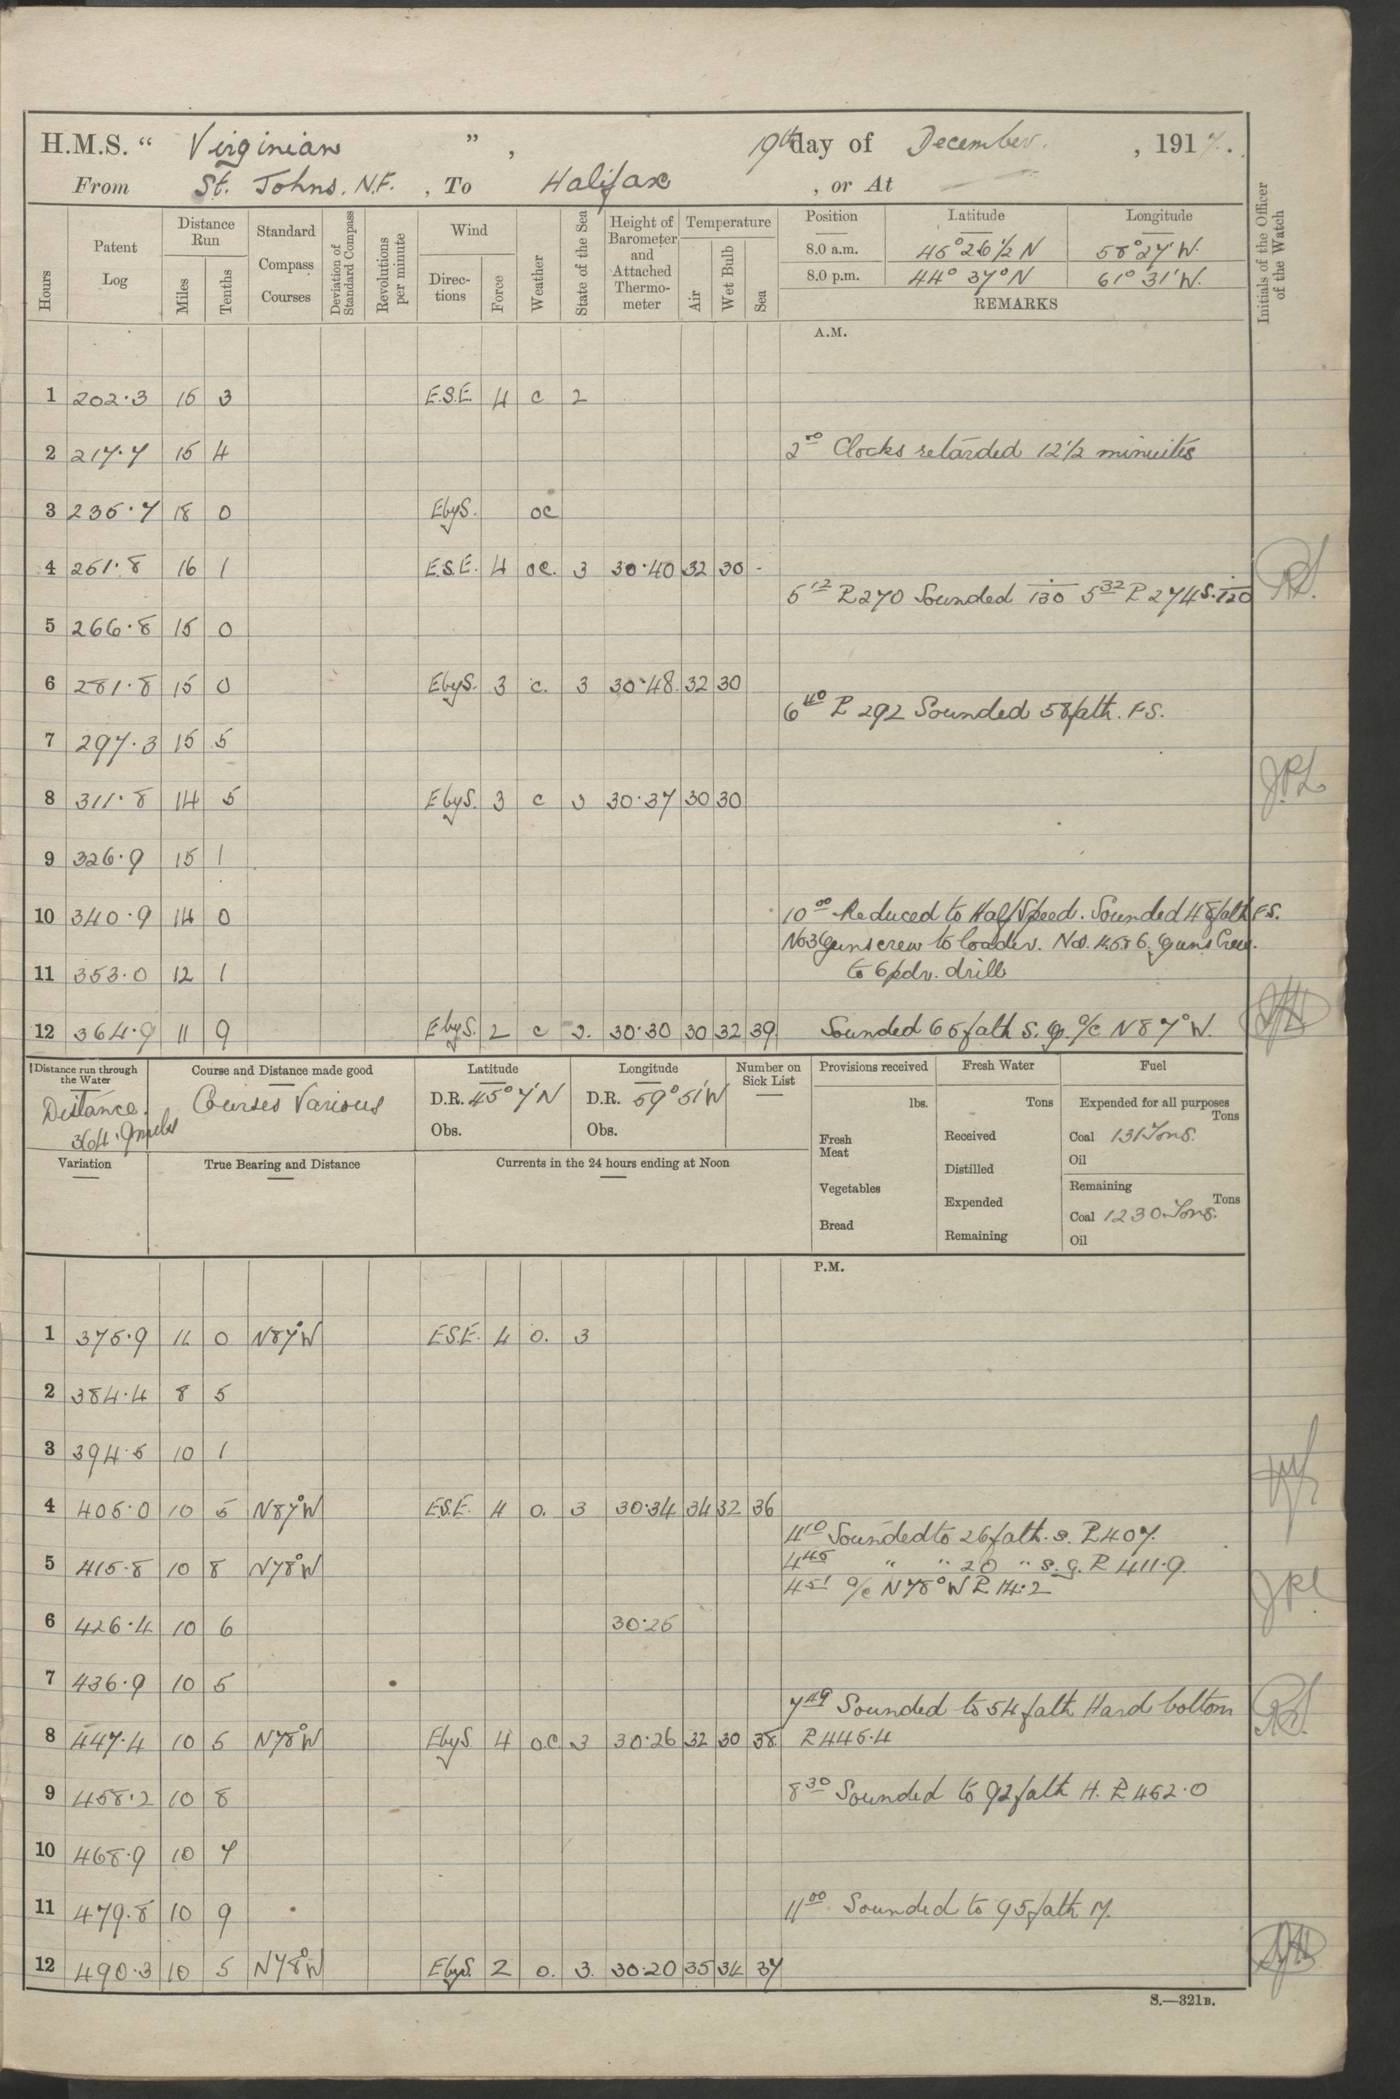 H.M.S. “ Virginian ” , 19th day of December. , 1917.
From St. Johns. N.F. , To Halifax , or At
Hours
Patent Log
Distance Run
Miles
Tenths
Standard Compass Courses
Deviation of Standard Compass
Revolutions per minute
Wind
Direc-tions
Force
Weather
State of the Sea
Height of Barometer and Attached Thermo-meter
Temperature
Air
Wet Bulb
Sea
Position Latitude Longitude
8.0 a.m. 45° 26 1/2 N 58° 27' W.
8.0 p.m. 44° 37° N 61° 31' W.
REMARKS
Initials of the Officer of the Watch
A.M.
1 202.3 15 3 E.S.E. 4 c 2
2 217.7 15 4 2 00 Clocks retarded 12 1/2 minuites
3 235.7 18 0 EbyS. oc
4 251.8 16 1 E.S.E. 4 oc. 3 30.40 32 30 -
5 12 P 270 Sounded 130 5 32 P 274 S. 120
5 266.8 15 0
6 281.8 15 0 EbyS. 3 c. 3 30.48 32 30
6 40 P 292 Sounded 58 fath. F.S.
7 297.3 15 5
8 311.8 14 5 EbyS. 3 c 3 30.37 30 30
JPL
9 326.9 15 1
10 340.9 14 0 10 00 Reduced to Half Speed. Sounded 48 fath F.S.
No 3 Guns crew to loader. Nos. 4.5 & 6. Guns Crew.
11 353.0 12 1 to 6 pdr. drill
12 364.9 11 9 EbyS. 2 c 3. 30.30 30 32 39 Sounded 65 fath S. g. a/c N 87° W.
Distance run through the Water
Distance.
364.9 miles
Course and Distance made good
Courses Various
Latitude
D.R. 45° 7' N
Obs.
Longitude
D.R. 59° 51' W
Obs.
Number on Sick List
Provisions received
lbs.
Fresh Meat
Vegetables
Bread
Fresh Water
Tons
Received
Distilled
Expended
Remaining
Fuel
Expended for all purposes
Tons
Coal 131 Tons.
Oil
Remaining
Tons
Coal 1230 Tons.
Oil
Variation
True Bearing and Distance
Currents in the 24 hours ending at Noon
P.M.
1 375.9 11 0 N87°W E.S.E. 4 o. 3
2 384.4 8 5
3 394.5 10 1
4 405.0 10 5 N87°W E.S.E. 4 o. 3 30.34 34 32 36
4 10 Sounded to 26 fath. s. P 407.
5 415.8 10 8 N78°W 4 45 " " 20 " s. g. P 411.9.
4 51 a/c N78°W P 14.2
6 426.4 10 6 30.25
JPL
7 436.9 10 5
7 49 Sounded to 54 fath Hard bottom
8 447.4 10 5 N78°W EbyS. 4 o.c 3 30.26 32 30 38 P 445.4
9 458.2 10 8 8 30 Sounded to 92 fath H. P 452.0
10 468.9 10 7
11 479.8 10 9 11 00 Sounded to 95 fath M.
12 490.3 10 5 N78°W EbyS. 2 o. 3. 30.20 35 34 37
S.—321B.